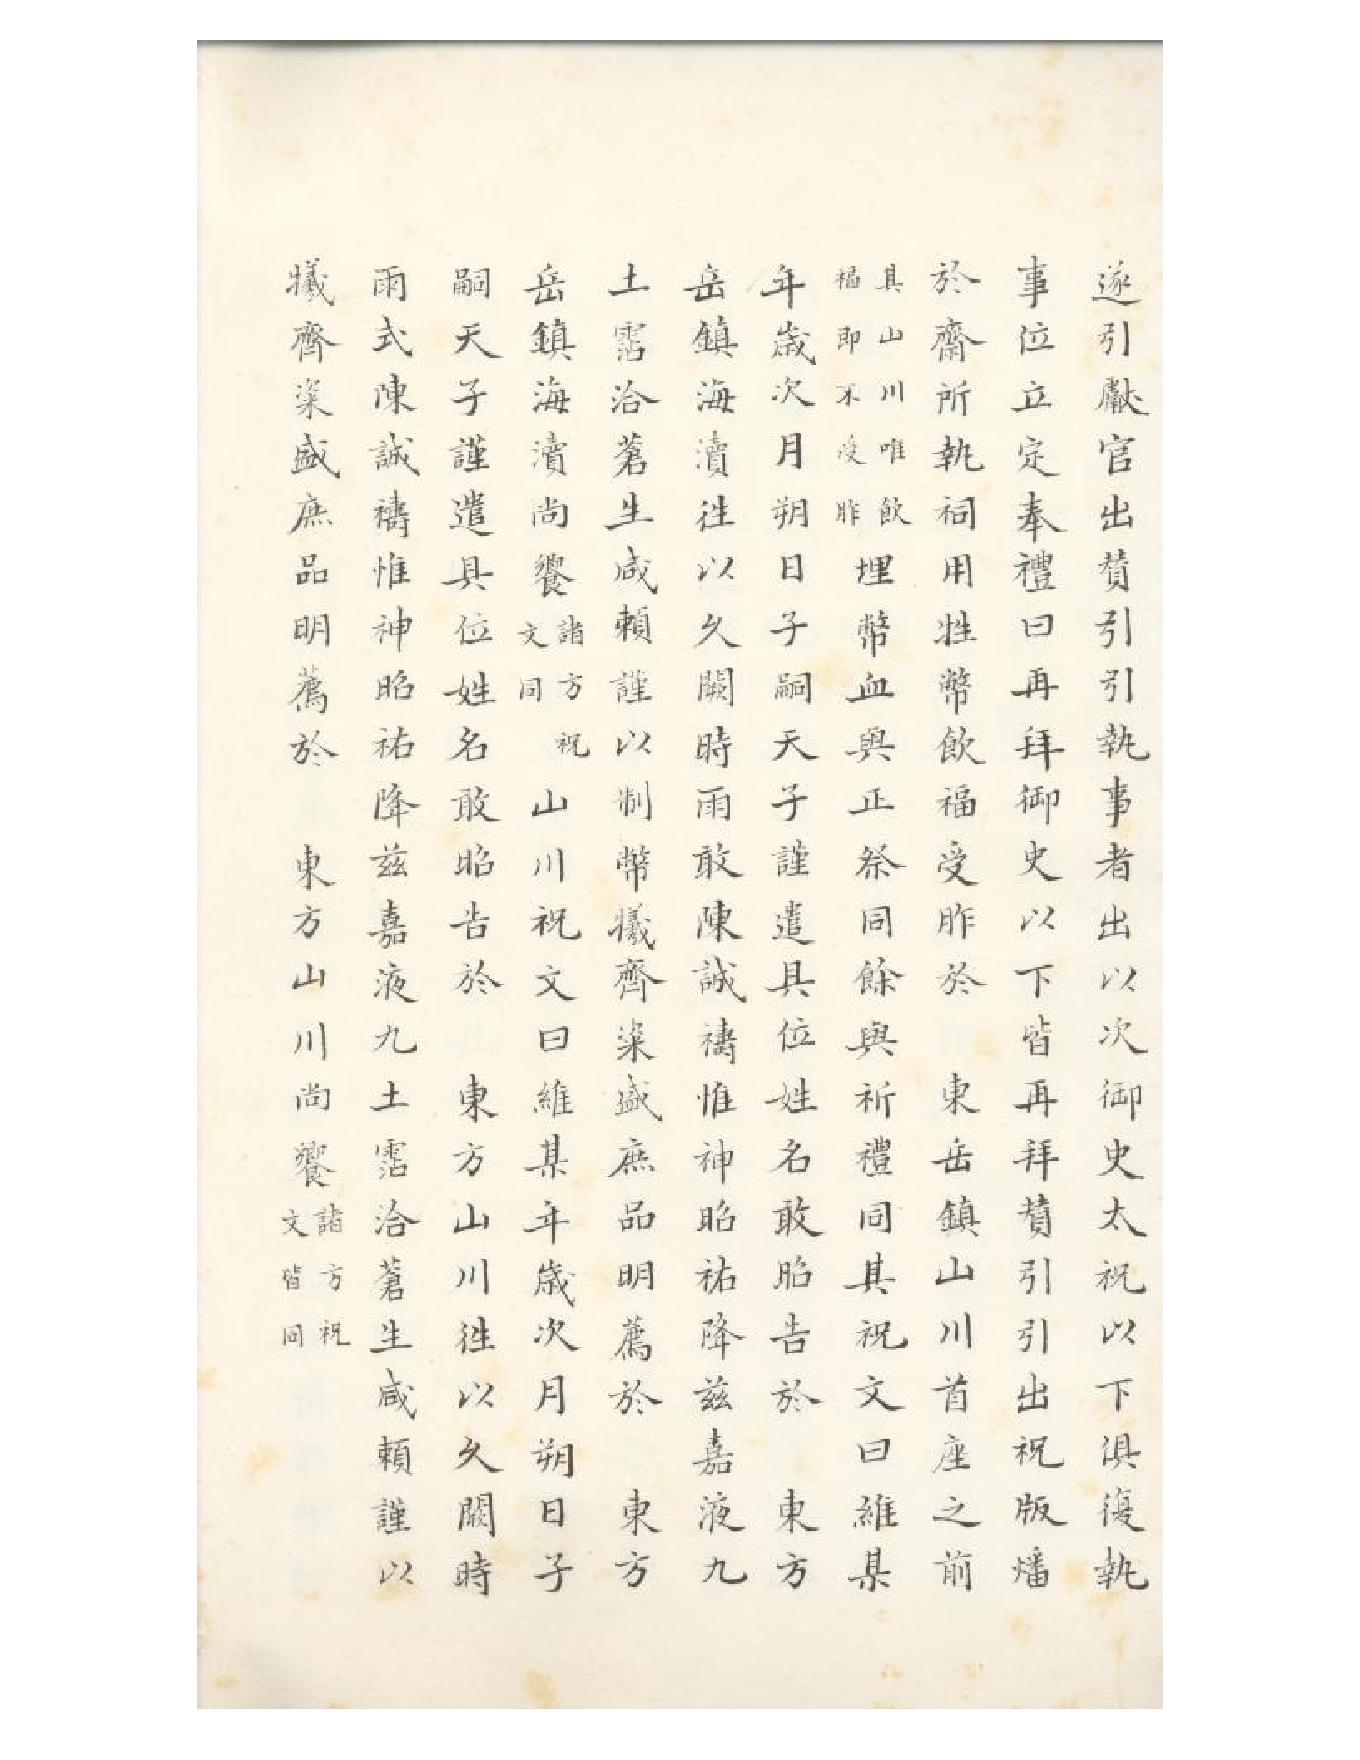 遂引獻官出賛引引執事者出以次御史太祝以下俱復執
事位立定奉禮曰再拜御史以下皆再拜賛引引出祝版燔
於齋所執祠用牲幣飲福受胙於　東岳鎮山川首座之前
具山川唯飲福即不受胙埋幣血與正祭同餘與祈禮同其祝文曰維某
年歲次月朔日子嗣天子謹遣具位姓名敢昭告於　東方
岳鎮海瀆徃以久闕時雨敢陳誠禱惟神昭祐降兹嘉液九
土霑洽蒼生咸賴謹以制幣犧齊粢盛庶品明薦於　東方
岳鎮海瀆尚饗諸方祝文同山川祝文曰維某年歲次月朔日子
嗣天子謹遣具位姓名敢昭告於　東方山川徃以久闕時
雨式陳誠禱惟神昭祐降兹嘉液九土霑洽蒼生咸賴謹以
犧齊粢盛庶品明薦於　東方山川尚饗諸方祝文皆同